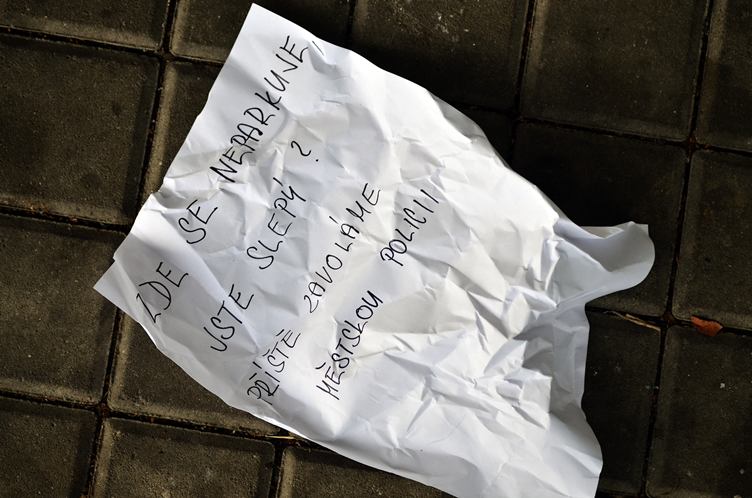 ZDE SE NEPARKUJE,
JSTE SLEPÝ?
PŘÍŠTĚ ZAVOLÁME
MĚSTSKOU POLICII